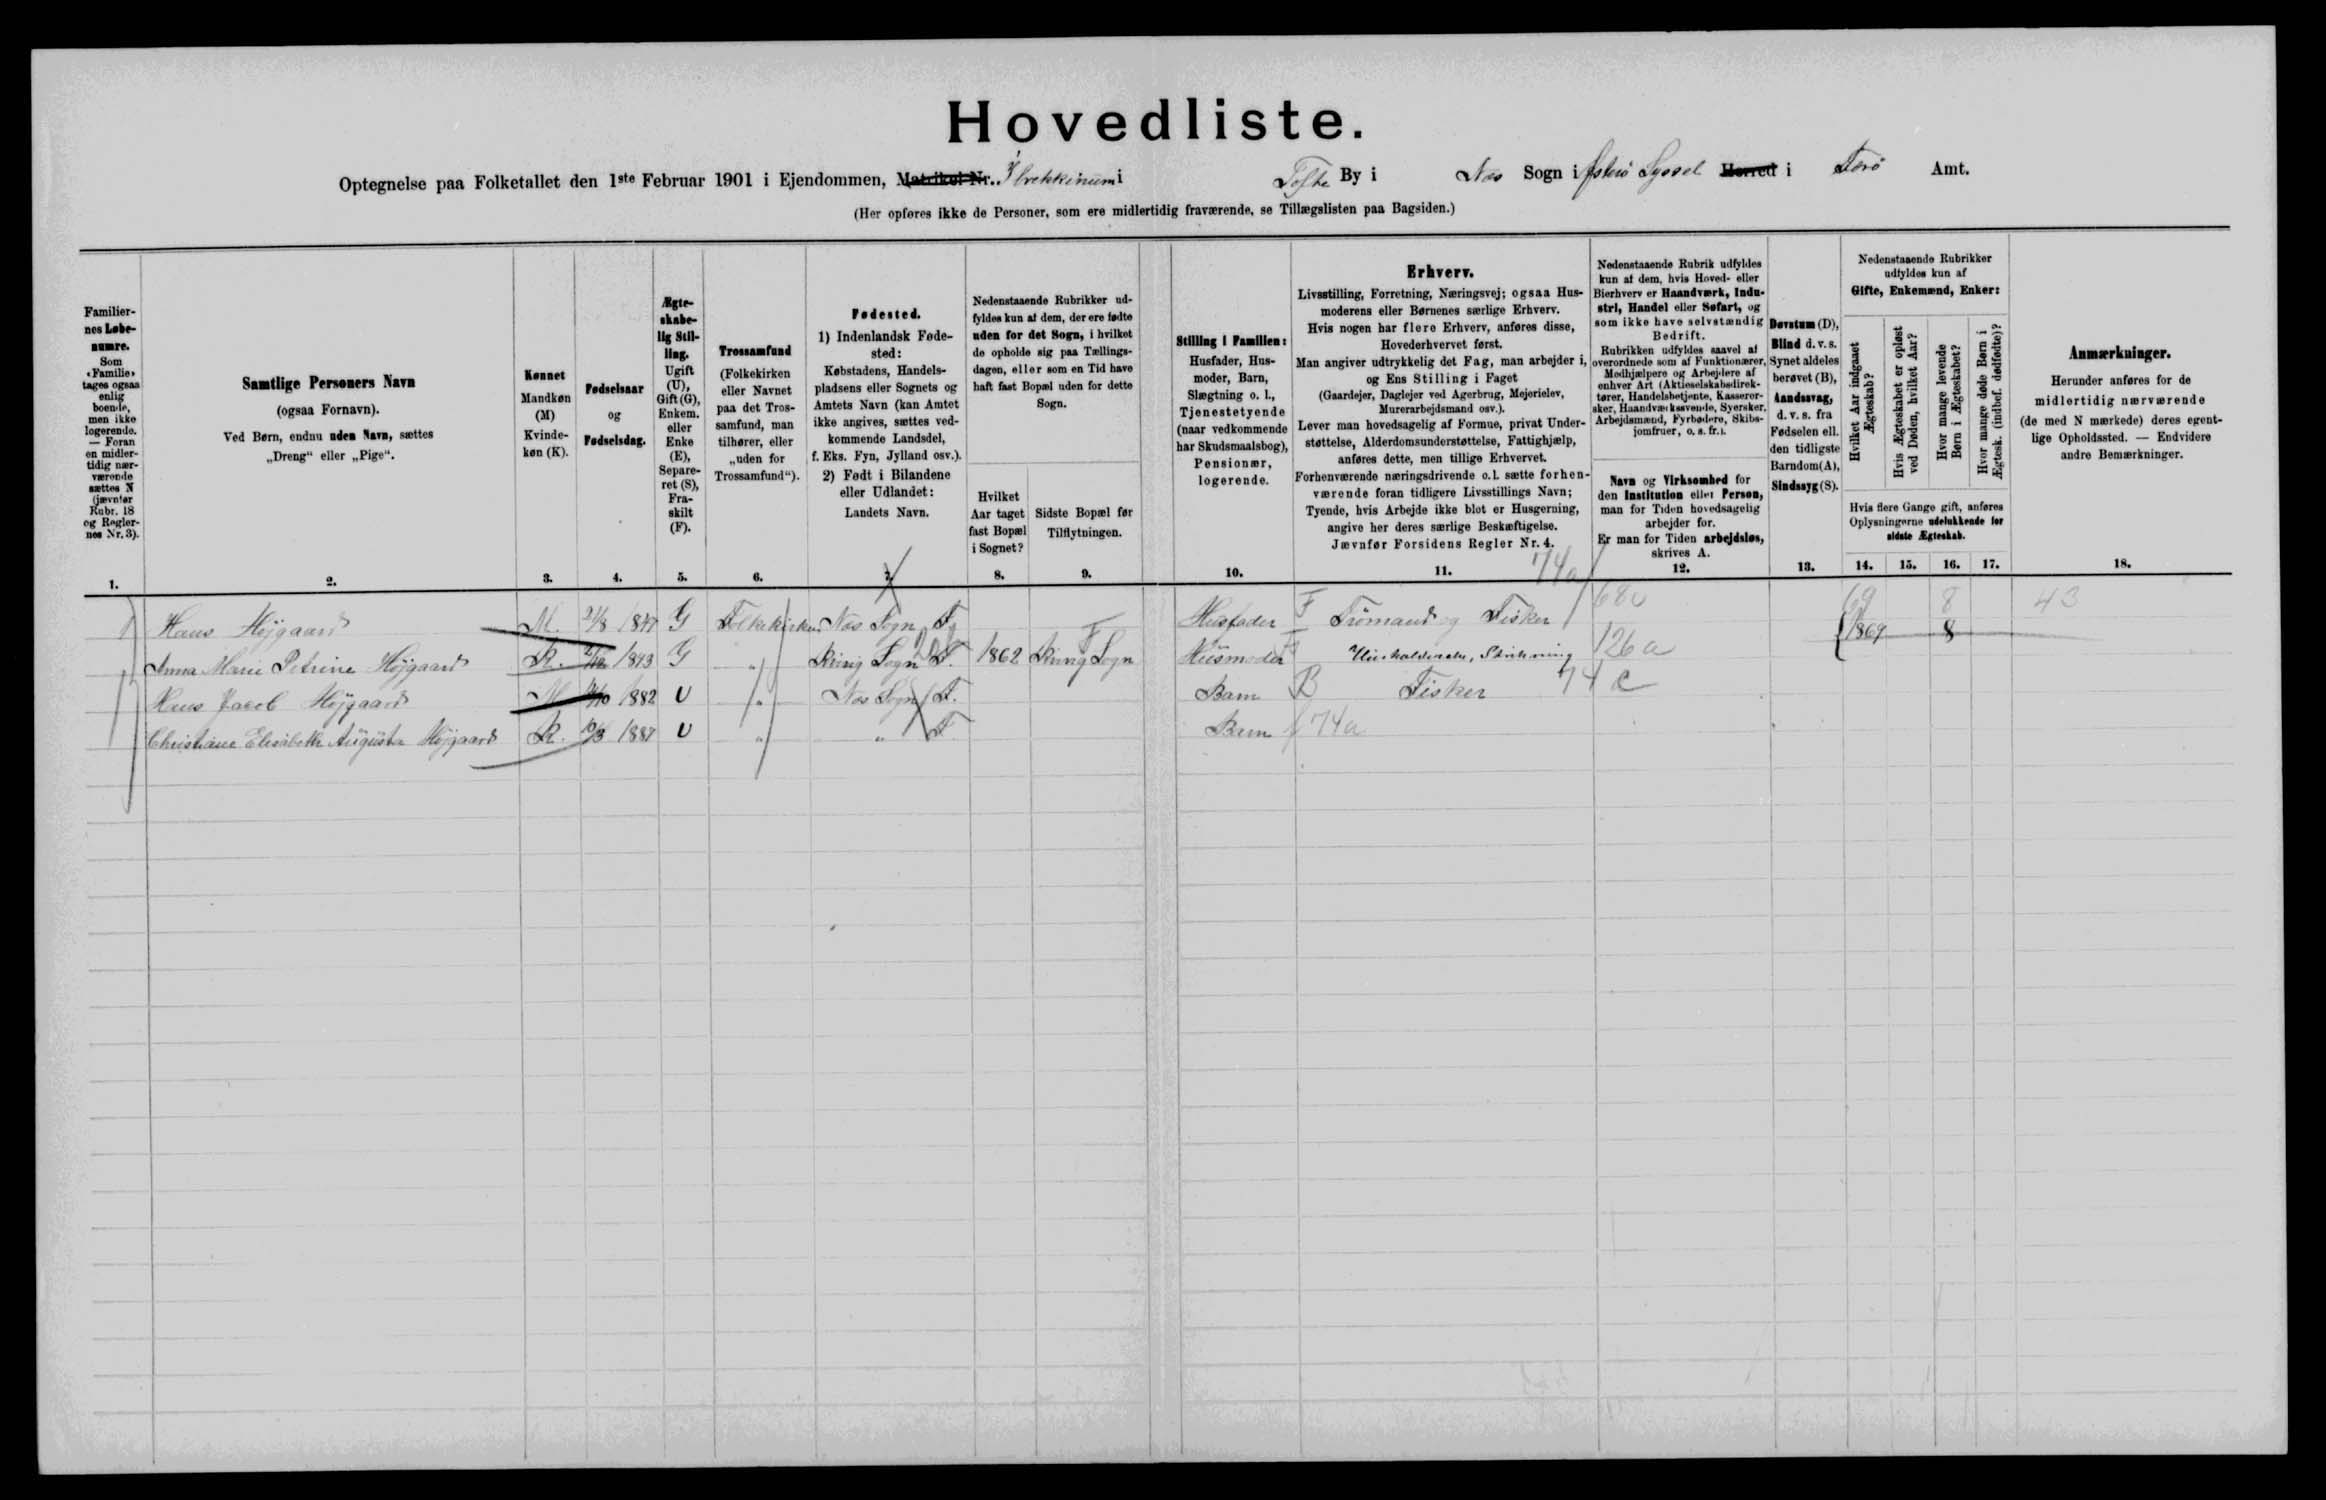 Hovedliste.
Optegnelse paa Folketallet den 1ste Februar 1901 i Ejendommen, Matrikel Nr. Ibrekkinum i Tofte By i Næs Sogn i Østerø Syssel Herred i Færø Amt.
(Her opføres ikke de Personer, som ere midlertidig fraværende, se Tillægslisten paa Bagsiden.)
Familier-
nes Løbe-
numre.
Som
«Familie»
tages ogsaa
enlig
boende,
men ikke
logerende.
— Foran
en midler-
tidig nær-
værende
sættes N
(jævnfør
Rubr. 18
og Regler-
nes Nr. 3).
1.
Samtlige Personers Navn
(ogsaa Fornavn).
Ved Børn, endnu uden Navn, sættes
„Dreng“ eller „Pige“.
2.
Kønnet
Mandkøn
(M)
Kvinde-
køn (K).
3.
Fødselsaar
og
Fødselsdag.
4.
Ægte-
skabe-
lig Stil-
ling.
Ugift
(U),
Gift (G),
Enkem.
eller
Enke
(E),
Separe-
ret (S),
Fra-
skilt
(F).
5.
Trossamfund
(Folkekirken
eller Navnet
paa det Tros-
samfund, man
tilhører, eller
„uden for
Trossamfund“).
6.
Fødested.
1) Indenlandsk Føde-
sted:
Købstadens, Handels-
pladsens eller Sognets og
Amtets Navn (kan Amtet
ikke angives, sættes ved-
kommende Landsdel,
f. Eks. Fyn, Jylland osv.).
2) Født i Bilandene
eller Udlandet:
Landets Navn.
7.
Nedenstaaende Rubrikker ud-
fyldes kun af dem, der ere fødte
uden for det Sogn, i hvilket
de opholde sig paa Tællings-
dagen, eller som en Tid have
haft fast Bopæl uden for dette
Sogn.
Hvilket
Aar taget
fast Bopæl
i Sognet?
8.
Sidste Bopæl før
Tilflytningen.
9.
Stilling i Familien:
Husfader, Hus-
moder, Barn,
Slægtning o. l.,
Tjenestetyende
(naar vedkommende
har Skudsmaalsbog),
Pensionær,
logerende.
10.
Erhverv.
Livsstilling, Forretning, Næringsvej; ogsaa Hus-
moderens eller Børnenes særlige Erhverv.
Hvis nogen har flere Erhverv, anføres disse,
Hovederhvervet først.
Man angiver udtrykkelig det Fag, man arbejder i,
og Ens Stilling i Faget
(Gaardejer, Daglejer ved Agerbrug, Mejerielev,
Murerarbejdsmand osv.).
Lever man hovedsagelig af Formue, privat Under-
støttelse, Alderdomsunderstøttelse, Fattighjælp,
anføres dette, men tillige Erhvervet.
Forhenværende næringsdrivende o.l. sætte forhen-
værende foran tidligere Livsstillings Navn;
Tyende, hvis Arbejde ikke blot er Husgerning,
angive her deres særlige Beskæftigelse.
Jævnfør Forsidens Regler Nr. 4.
11. 74a
Nedenstaaende Rubrik udfyldes
kun af dem, hvis Hoved- eller
Bierhverv er Haandværk, Indu-
stri, Handel eller Søfart, og
som ikke have selvstændig
Bedrift.
Rubrikken udfyldes saavel af
overordnede som af Funktionærer,
Medhjælpere og Arbejdere af
enhver Art (Aktieselskabsdirek-
tører, Handelsbetjente, Kasserer-
sker, Haandværkssvende, Syersker,
Arbejdsmænd, Fyrbødere, Skibs-
jomfruer, o. s. fr.).
Navn og Virksomhed for
den Institution eller Person,
man for Tiden hovedsagelig
arbejder for.
Er man for Tiden arbejdsløs,
skrives A.
12.
Døvstum (D),
Blind d. v. s.
Synet aldeles
berøvet (B),
Aandssvag,
d. v. s. fra
Fødselen ell.
den tidligste
Barndom (A),
Sindssyg (S).
13.
Nedenstaaende Rubrikker
udfyldes kun af
Gifte, Enkemænd, Enker:
Hvilket Aar indgaaet
Ægteskab?
Hvis Ægteskabet er opløst
ved Døden, hvilket Aar?
Hvor mange levende
Børn i Ægteskabet?
Hvor mange døde Børn i
Ægtesk. (indbef. dødfødte)?
Hvis flere Gange gift, anføres
Oplysningerne udelukkende for
sidste Ægteskab.
14. 15. 16. 17.
Anmærkninger.
Herunder anføres for de
midlertidig nærværende
(de med N mærkede) deres egent-
lige Opholdssted. — Endvidere
andre Bemærkninger.
18.
1 Hans Højgaard M. 21/8 1847 G Folkekirken Næs Sogn F Husfader F Trømand og Fisker 680 69 8 43
Anna Marie Petrine Højgaard K. 1843 G „ Kvivig Sogn F. 1862 Kvivig Sogn F Husmoder Husholdende, Strikning 126a 1869 8
Hans Jacob Højgaard M 1882 U „ Næs Sogn F. Barn B Fisker 74 c
Christiane Elisabeth Augusta Højgaard K. 1887 U „ „ F. Barn 74a